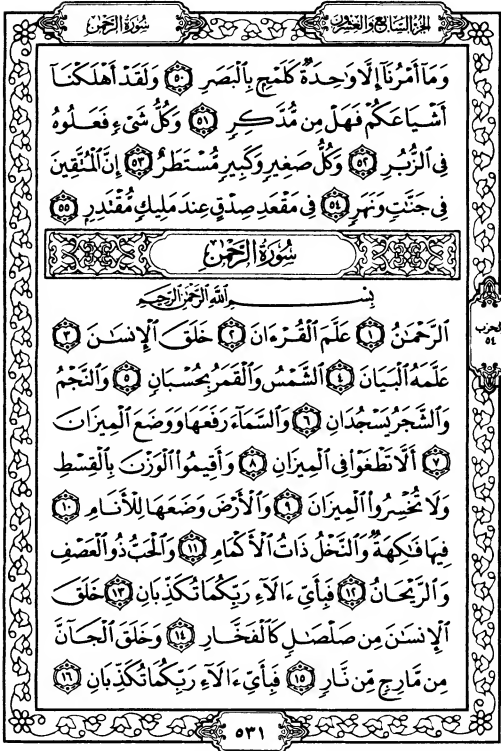 سُورَةُ الرَّحْمٰن
الجزء السابع والعشرون
وَمَآ أَمْرُنَآ إِلَّا وَٰحِدَةٌ كَلَمْحٍۭ بِٱلْبَصَرِ ٥٠ وَلَقَدْ أَهْلَكْنَآ
أَشْيَاعَكُمْ فَهَلْ مِن مُّدَّكِرٍ ٥١ وَكُلُّ شَىْءٍ فَعَلُوهُ
فِى ٱلزُّبُرِ ٥٢ وَكُلُّ صَغِيرٍ وَكَبِيرٍ مُّسْتَطَرٌ ٥٣ إِنَّ ٱلْمُتَّقِينَ
فِى جَنَّٰتٍ وَنَهَرٍ ٥٤ فِى مَقْعَدِ صِدْقٍ عِندَ مَلِيكٍ مُّقْتَدِرٍۭ ٥٥
سُورَةُ الرَّحْمٰن
بِسْمِ ٱللَّهِ ٱلرَّحْمَٰنِ ٱلرَّحِيمِ
ٱلرَّحْمَٰنُ ١ عَلَّمَ ٱلْقُرْءَانَ ٢ خَلَقَ ٱلْإِنسَٰنَ ٣
عَلَّمَهُ ٱلْبَيَانَ ٤ ٱلشَّمْسُ وَٱلْقَمَرُ بِحُسْبَانٍ ٥ وَٱلنَّجْمُ
وَٱلشَّجَرُ يَسْجُدَانِ ٦ وَٱلسَّمَآءَ رَفَعَهَا وَوَضَعَ ٱلْمِيزَانَ
٧ أَلَّا تَطْغَوْا۟ فِى ٱلْمِيزَانِ ٨ وَأَقِيمُوا۟ ٱلْوَزْنَ بِٱلْقِسْطِ
وَلَا تُخْسِرُوا۟ ٱلْمِيزَانَ ٩ وَٱلْأَرْضَ وَضَعَهَا لِلْأَنَامِ ١٠
فِيهَا فَٰكِهَةٌ وَٱلنَّخْلُ ذَاتُ ٱلْأَكْمَامِ ١١ وَٱلْحَبُّ ذُو ٱلْعَصْفِ
وَٱلرَّيْحَانُ ١٢ فَبِأَىِّ ءَالَآءِ رَبِّكُمَا تُكَذِّبَانِ ١٣ خَلَقَ
ٱلْإِنسَٰنَ مِن صَلْصَٰلٍ كَٱلْفَخَّارِ ١٤ وَخَلَقَ ٱلْجَآنَّ
مِن مَّارِجٍ مِّن نَّارٍ ١٥ فَبِأَىِّ ءَالَآءِ رَبِّكُمَا تُكَذِّبَانِ ١٦
الحزب
٥٤
٥٣١